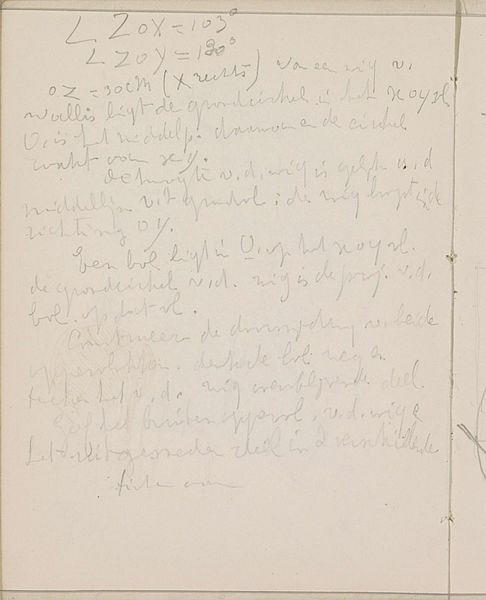 ∠ ZOX = 103°
∠ ZOY = 130°
OZ = 30cm (X rechts) Van een wig v.
Wallis ligt de grondcirkel in het xoy vl
O, is het middelp. daarvan en de cirkel
raakt aan x y.
De hoogte v. d. wig is gelijk a. d
middellijn v. h grondvl; de wig loopt in de
richting OY.
Een bol ligt in O, op het xoy vl.
de grondcirkel v. d. wig is de proj. v. d.
bol. op dat vl.
Construeer de doorsnijding v. beide
oppervlakken. denk de bol weg en
teeken het v. d. wig overblijvende deel
Geef het buiten oppervl. v. d. wig &
het uitgesneden deel in 2 verschillende
tinten aan